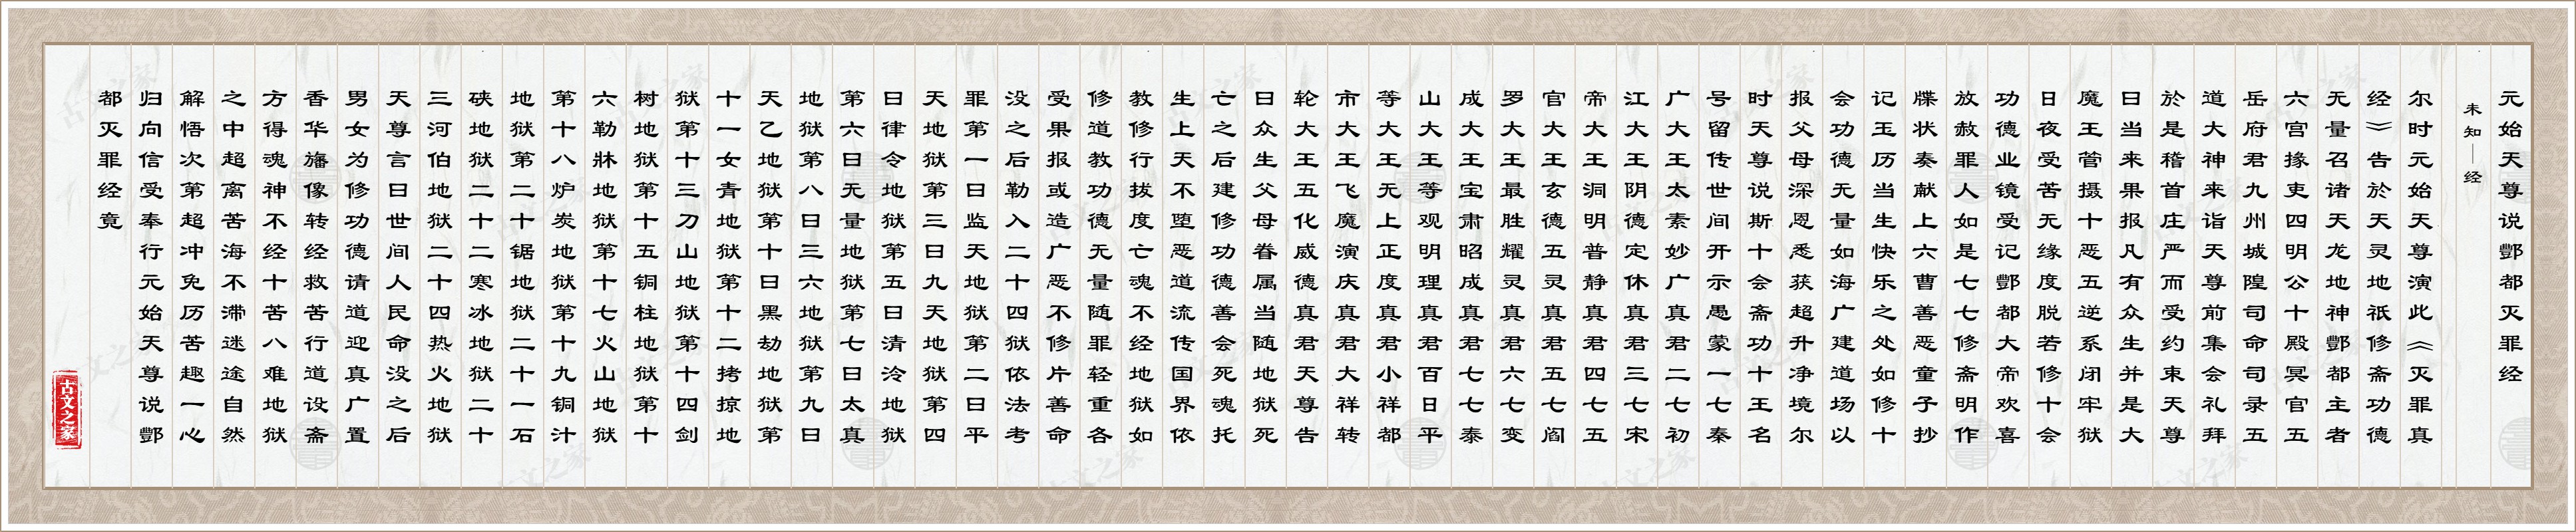 元始天尊说酆都灭罪经
未知｜经
尔时元始天尊演此《灭罪真
经》告於天灵地祇修斋功德
无量召诸天龙地神酆都主者
六宫掾吏四明公十殿冥官五
岳府君九州城隍司命司录五
道大神来诣天尊前集会礼拜
於是稽首庄严而受约束天尊
曰当来果报凡有众生并是大
魔王管摄十恶五逆系闭牢狱
日夜受苦无缘度脱若修十会
功德业镜受记酆都大帝欢喜
放赦罪人如是七七修斋明作
牒状奏献上六曹善恶童子抄
记玉历当生快乐之处如修十
会功德无量如海广建道场以
报父母深恩悉获超升净境尔
时天尊说斯十会斋功十王名
号留传世间开示愚蒙一七秦
广大王太素妙广真君二七初
江大王阴德定休真君三七宋
帝大王洞明普静真君四七五
官大王玄德五灵真君五七阎
罗大王最胜耀灵真君六七变
成大王宝肃昭成真君七七泰
山大王等观明理真君百日平
等大王无上正度真君小祥都
市大王飞魔演庆真君大祥转
轮大王五化威德真君天尊告
曰众生父母眷属当随地狱死
亡之后建修功德善会死魂托
生上天不堕恶道流传国界依
教修行拔度亡魂不经地狱如
修道教功德无量随罪轻重各
受果报或造广恶不修片善命
没之后勒入二十四狱依法考
罪第一曰监天地狱第二曰平
天地狱第三曰九天地狱第四
曰律令地狱第五曰清泠地狱
第六曰无量地狱第七曰太真
地狱第八曰三六地狱第九曰
天乙地狱第十曰黑劫地狱第
十一女青地狱第十二拷掠地
狱第十三刀山地狱第十四剑
树地狱第十五铜柱地狱第十
六勒牀地狱第十七火山地狱
第十八炉炭地狱第十九铜汁
地狱第二十锯地狱二十一石
硖地狱二十二寒冰地狱二十
三河伯地狱二十四热火地狱
天尊言曰世间人民命没之后
男女为修功德请道迎真广置
香华旛像转经救苦行道设斋
方得魂神不经十苦八难地狱
之中超离苦海不滞迷途自然
解悟次第超冲免历苦趣一心
归向信受奉行元始天尊说酆
都灭罪经竟
古文之家